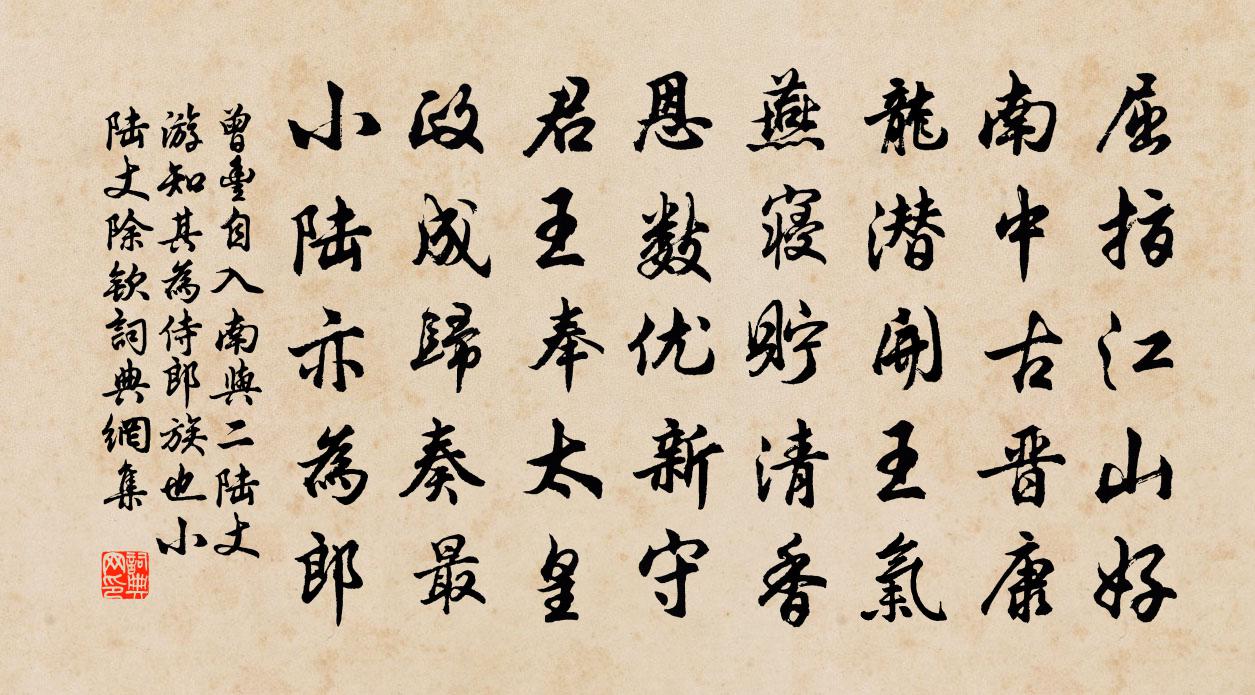 屈指江山好
南中古晋康
龍潜開王氣
燕寢貯清香
恩數优新守
君王奉太皇
政成歸奏最
小陸亦為郎
曾豊自入南與二陸丈
游知其為侍郎族也小
陸丈除欽詞典網集
詞典
网印